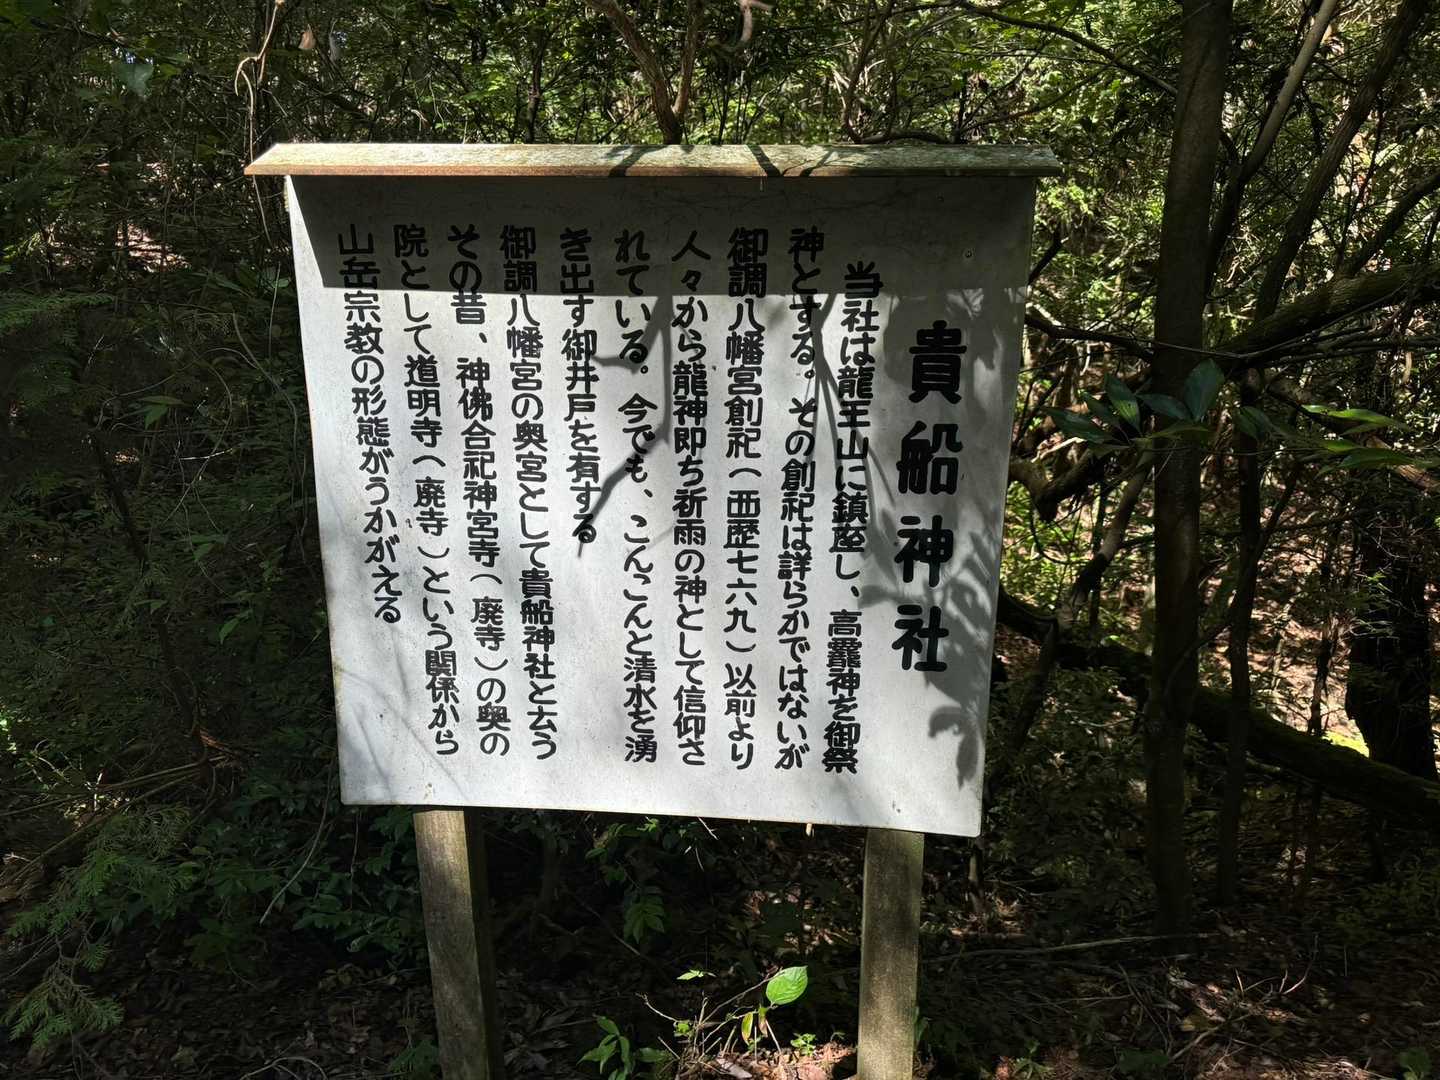 貴船神社
当社は龍王山に鎮座し、高龗神を御祭
神とする。その創祀は詳らかではないが
御調八幡宮創祀(西歴七六九)以前より
人々から龍神即ち祈雨の神として信仰さ
れている。今でも、こんこんと清水を湧
き出す御井戸を有する
御調八幡宮の奥宮として貴船神社と云う
その昔、神佛合祀神宮寺(廃寺)の奥の
院として道明寺(廃寺)という関係から
山岳宗教の形態がうかがえる